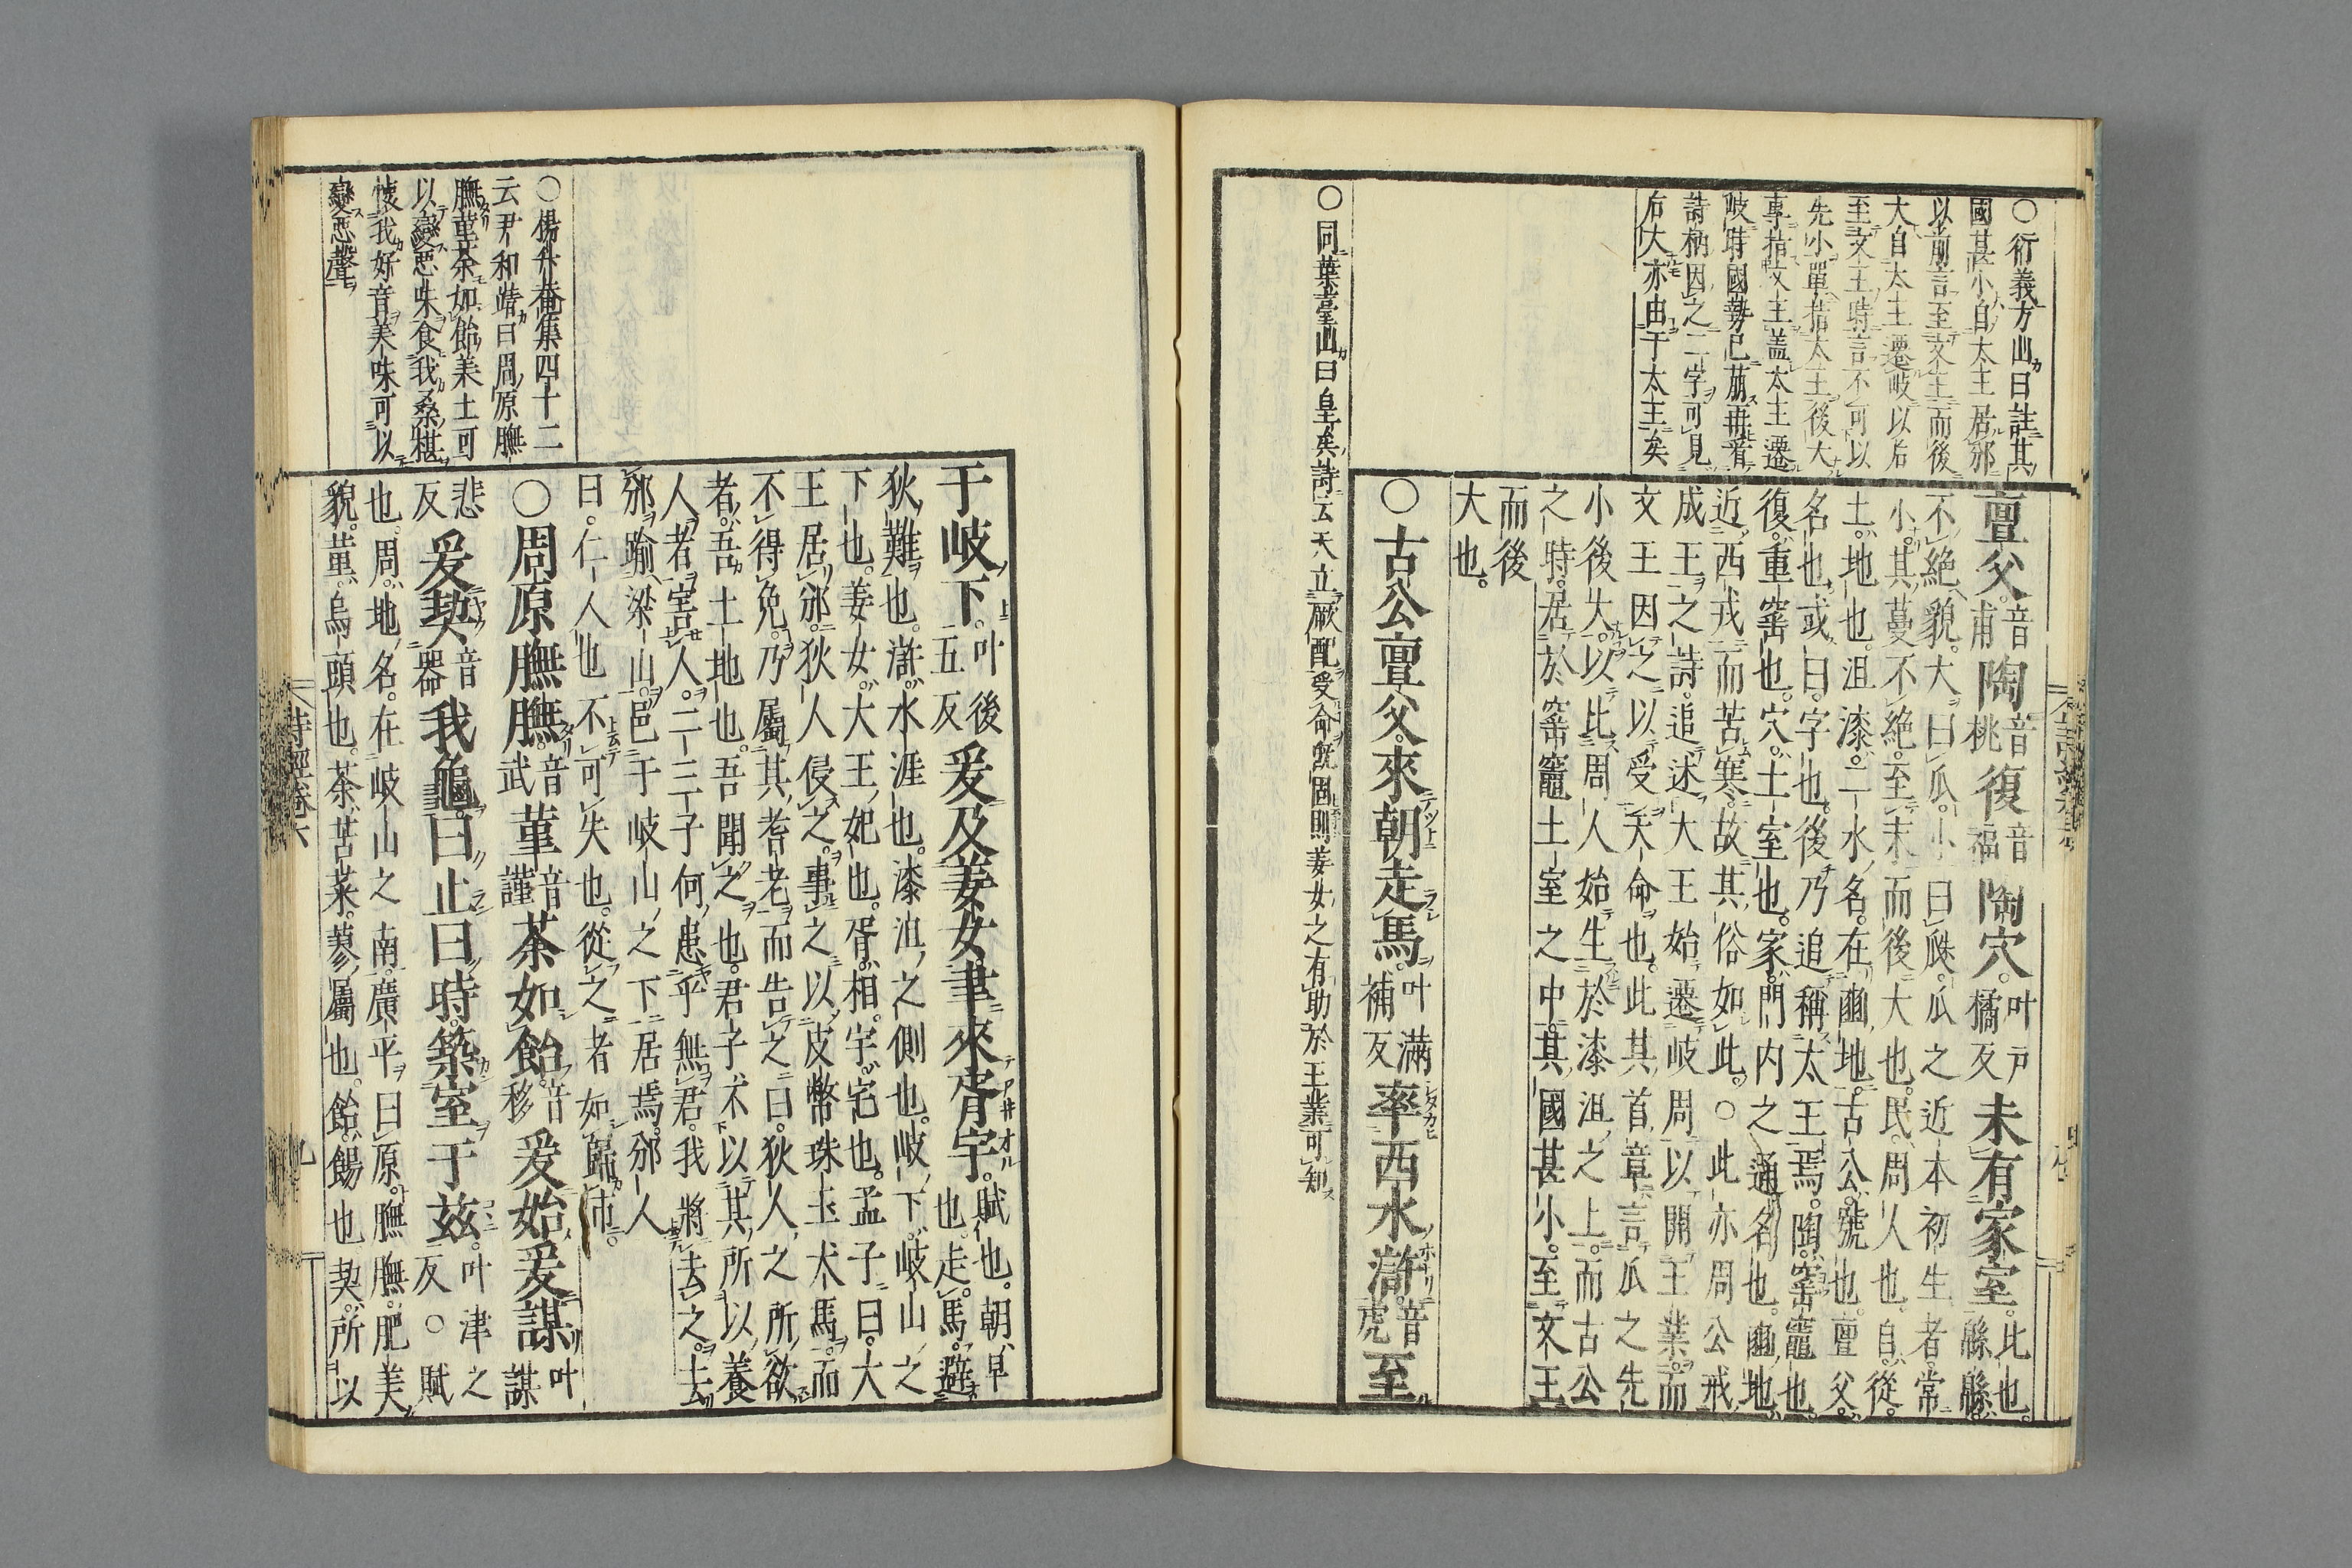 ○衍義方山曰註其
國甚小自太王居邠
以前言至文王而後
大自太王遷岐以后
至文王時言不可以
先小單指太王後大
專指文王盖太王遷
岐時國勢已萠再看
詩柄因之二字可見
后大亦由于太王矣
亶父音甫陶音桃復音福陶穴叶戸橘反未有家室比也緜緜
不絶貌大曰瓜小曰瓞瓜之近本初生者常
小其蔓不絶至末而後大也民周人也自從
土地也沮漆二水名在豳地古公號也亶父
名也或曰字也後乃追稱太王焉陶窰竈也
復重窰也穴土室也家門内之通名也豳地
近西戎而苦寒故其俗如此○此亦周公戒
成王之詩追述大王始遷岐周以開王業而
文王因之以受天命也此其首章言瓜之先
小後大以比周人始生於漆沮之上而古公
之時居於窰竈土室之中其國甚小至文王
而後
大也
○古公亶父來朝走馬叶滿補反率西水滸音虎至
○同葉臺山曰皇矣詩云天立厥配受命既固則姜女之有助於王業可知
于岐下叶後五反爰及姜女聿來胥宇賦也朝早也走馬避
狄難也滸水涯也漆沮之側也岐下岐山之
下也姜女大王妃也胥相宇宅也孟子曰大
王居邠狄人侵之事之以皮幣珠玉犬馬而
不得免乃屬其耆老而告之曰狄人之所欲
者吾土地也吾聞之也君子不以其所以養
人者害人二三子何患乎無君我將去之去
邠踰梁山邑于岐山之下居焉邠人
曰仁人也不可失也從之者如歸市
○周原膴膴音武菫音謹荼如飴音移爰始爰謀叶謀
悲反爰契音器我龜曰止曰時築室于兹叶津之反○賦
也周地名在岐山之南廣平曰原膴膴肥美
貌菫烏頭也荼苦菜蓼屬也飴餳也契所以
○楊升菴集四十二
云尹和靖曰周原膴
膴菫荼如飴美土可
以變惡味食我桑椹
懷我好音美味可以
變惡聲
詩經卷六
九